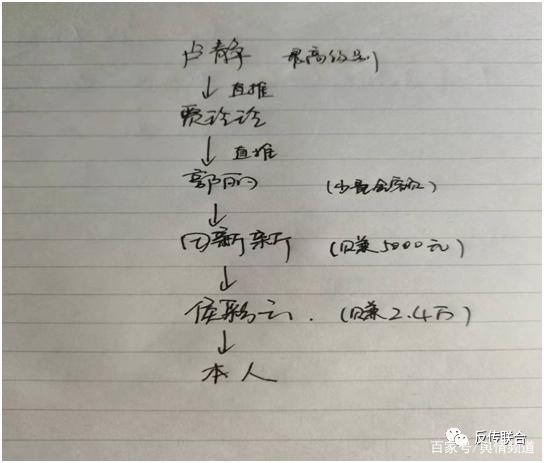 卢静 最高级别
↓ 直推
贾玲玲
↓ 直推
郭丽
↓
田新新 (日赚5000元)
↓
侯彩云. (日赚2.4万)
↓
本人
反传联合
百家号/舆情频道